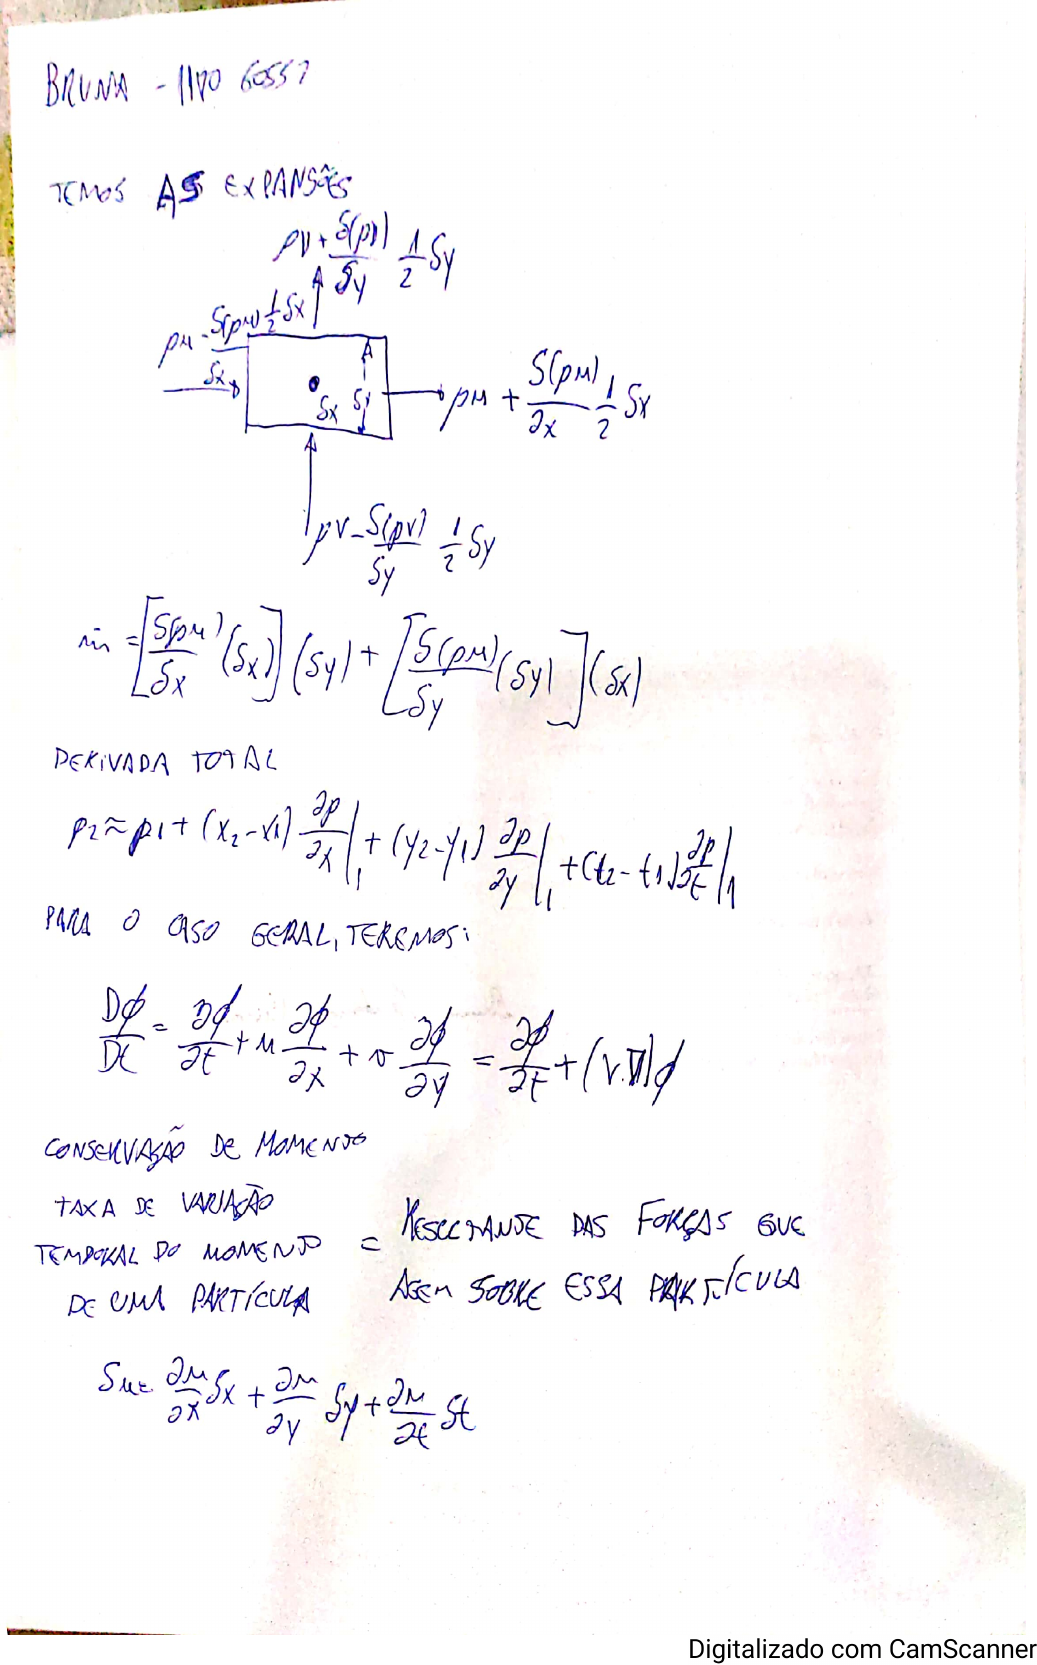 BRUNA - 1140 60557
TEMOS AS EXPANSÕES
ρv + δ(ρv)/δy 1/2 δy
ρu - δ(ρu)/δx 1/2 δx
δx δy
ρu + δ(ρu)/∂x 1/2 δx
ρv - δ(ρv)/δy 1/2 δy
ṁ = [δ(ρu)/δx (δx)] (δy) + [δ(ρu)/δy (δy)] (δx)
DERIVADA TOTAL
ρ2 ≈ ρ1 + (x2 - x1) ∂ρ/∂x|1 + (y2 - y1) ∂ρ/∂y|1 + (t2 - t1) ∂ρ/∂t|1
PARA O CASO GERAL, TEREMOS:
Dϕ/Dt = ∂ϕ/∂t + u ∂ϕ/∂x + v ∂ϕ/∂y = ∂ϕ/∂t + (V.∇)ϕ
CONSERVAÇÃO DE MOMENTO
TAXA DE VARIAÇÃO
TEMPORAL DO MOMENTO
DE UMA PARTÍCULA
= RESULTANTE DAS FORÇAS QUE
AGEM SOBRE ESSA PARTÍCULA
δu = ∂u/∂x δx + ∂u/∂y δy + ∂u/∂t δt
Digitalizado com CamScanner